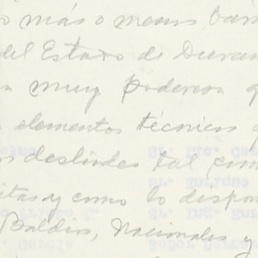 o más o menos bar
del Estado de Duran
muy poderosa q
elementos técnicos
deslindes tal como
itas y como lo dispo
Baldíos, Nacionales y